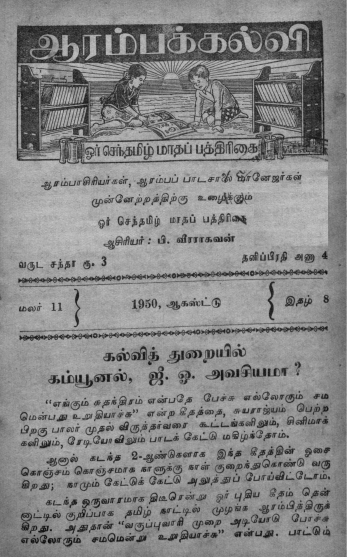 ஆரம்பக்கல்வி
ஓர் செந்தமிழ் மாதப் பத்திரிகை
ஆரம்பாசிரியர்கள், ஆரம்பப் பாடசாலை மானேஜர்கள்
முன்னேற்றத்திற்கு உழைக்கும்
ஓர் செந்தமிழ் மாதப் பத்திரிகை
ஆசிரியர் : பி. வீரராகவன்
வருட சந்தா ரூ. 3 தனிப்பிரதி அணா 4
மலர் 11 } 1950, ஆகஸ்ட்டு { இதழ் 8
கல்வித் துறையில்
கம்யூனல், ஜீ. ஓ. அவசியமா ?
“எங்கும் சுதந்திரம் என்பதே பேச்சு எல்லோரும் சம
மென்பது உறுதியாச்சு” என்ற கீதத்தை, சுயராஜ்யம் பெற்ற
பிறகு பாலர் முதல் விருத்தர்வரை கூட்டங்களிலும், சினிமாக்
களிலும், ரேடியோவிலும் பாடக் கேட்டு மகிழ்ந்தோம்.
ஆனால் கடந்த 2-ஆண்டுகளாக இந்த கீதத்தின் ஓசை
கொஞ்சம் கொஞ்சமாக காளுக்கு காள் குறைந்துகொண்டு வரு
கிறது; காமும் கேட்டுக் கேட்டு அலுத்துப் போய்விட்டோம்.
கடந்த ஒருவாரமாக திடீரென்று ஓர் புதிய கீதம் தென்
னாட்டில் குறிப்பாக தமிழ் காட்டில் முழங்க ஆரம்பித்திருக்
கிறது. அதுதான் “வருப்புவாரி முறை அடியோடு போச்சு
எல்லோரும் சமமென்று உறுதியாச்சு” என்பது. பாட்டும்